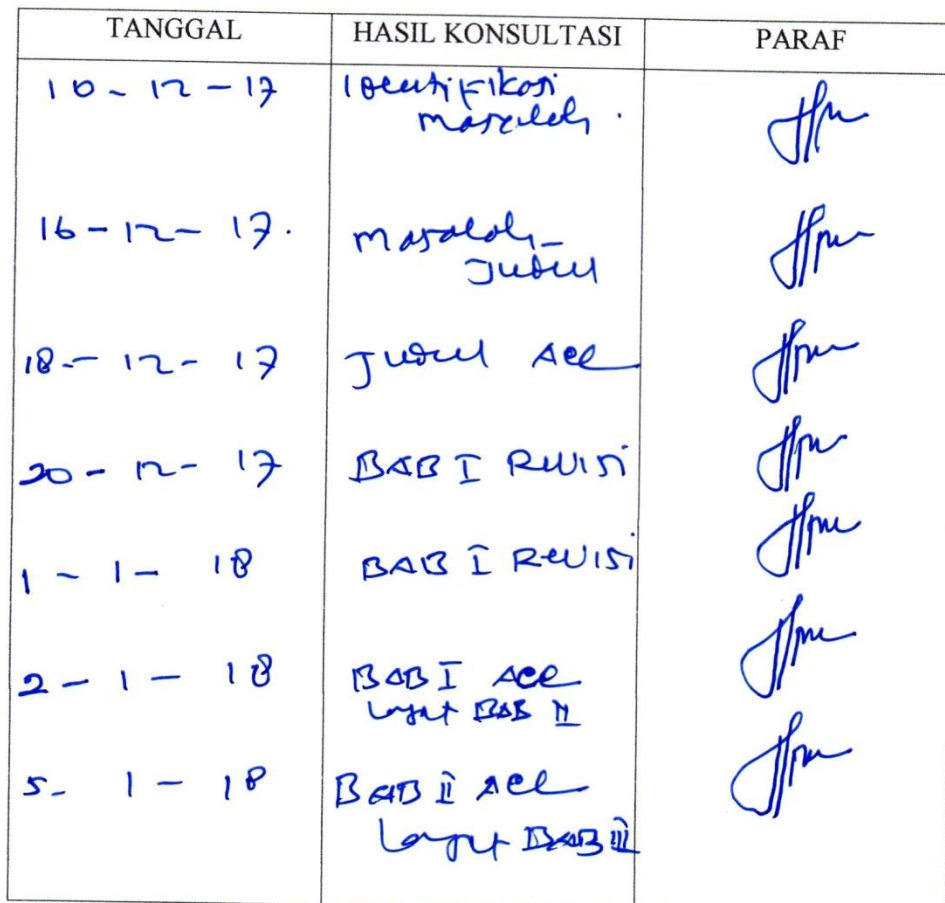 TANGGAL HASIL KONSULTASI PARAF
10 - 12 - 17 Identifikasi
masalah.
16 - 12 - 17. masalah -
Judul
18 - 12 - 17 Judul Acc
20 - 12 - 17 BAB I Revisi
1 - 1 - 18 BAB I Revisi
2 - 1 - 18 BAB I Acc
Lanjut BAB II
5 - 1 - 18 BAB II Acc
Lanjut BAB III